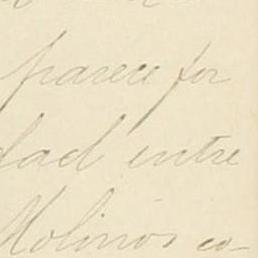 parece for
dad entre
Molinos co-